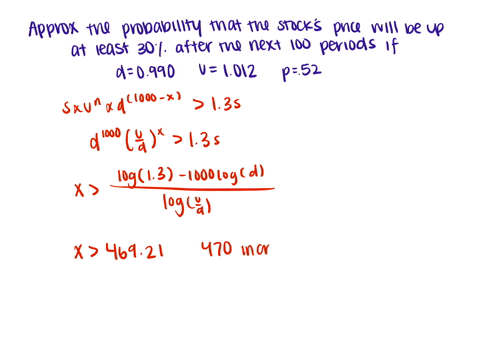 Approx the probability that the stock's price will be up
at least 30% after the next 100 periods if
d=0.990 u=1.012 p=.52
s x u^n x d^(1000-x) > 1.3s
d^1000 (u/d)^x > 1.3s
x > (log(1.3) - 1000log(d)) / log(u/d)
x > 469.21 470 incr